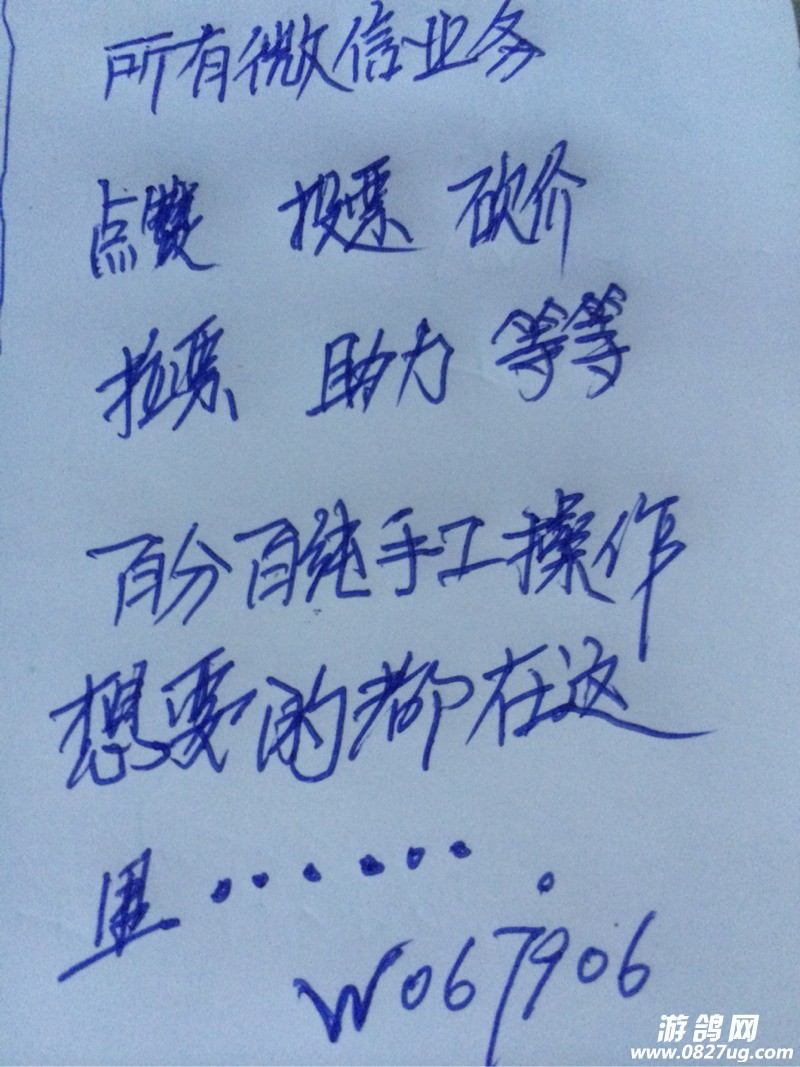 所有微信业务
点赞 投票 砍价
拉票 助力 等等
百分百纯手工操作
想要的都在这
里······.
W067906
游鸽网
www.0827ug.com